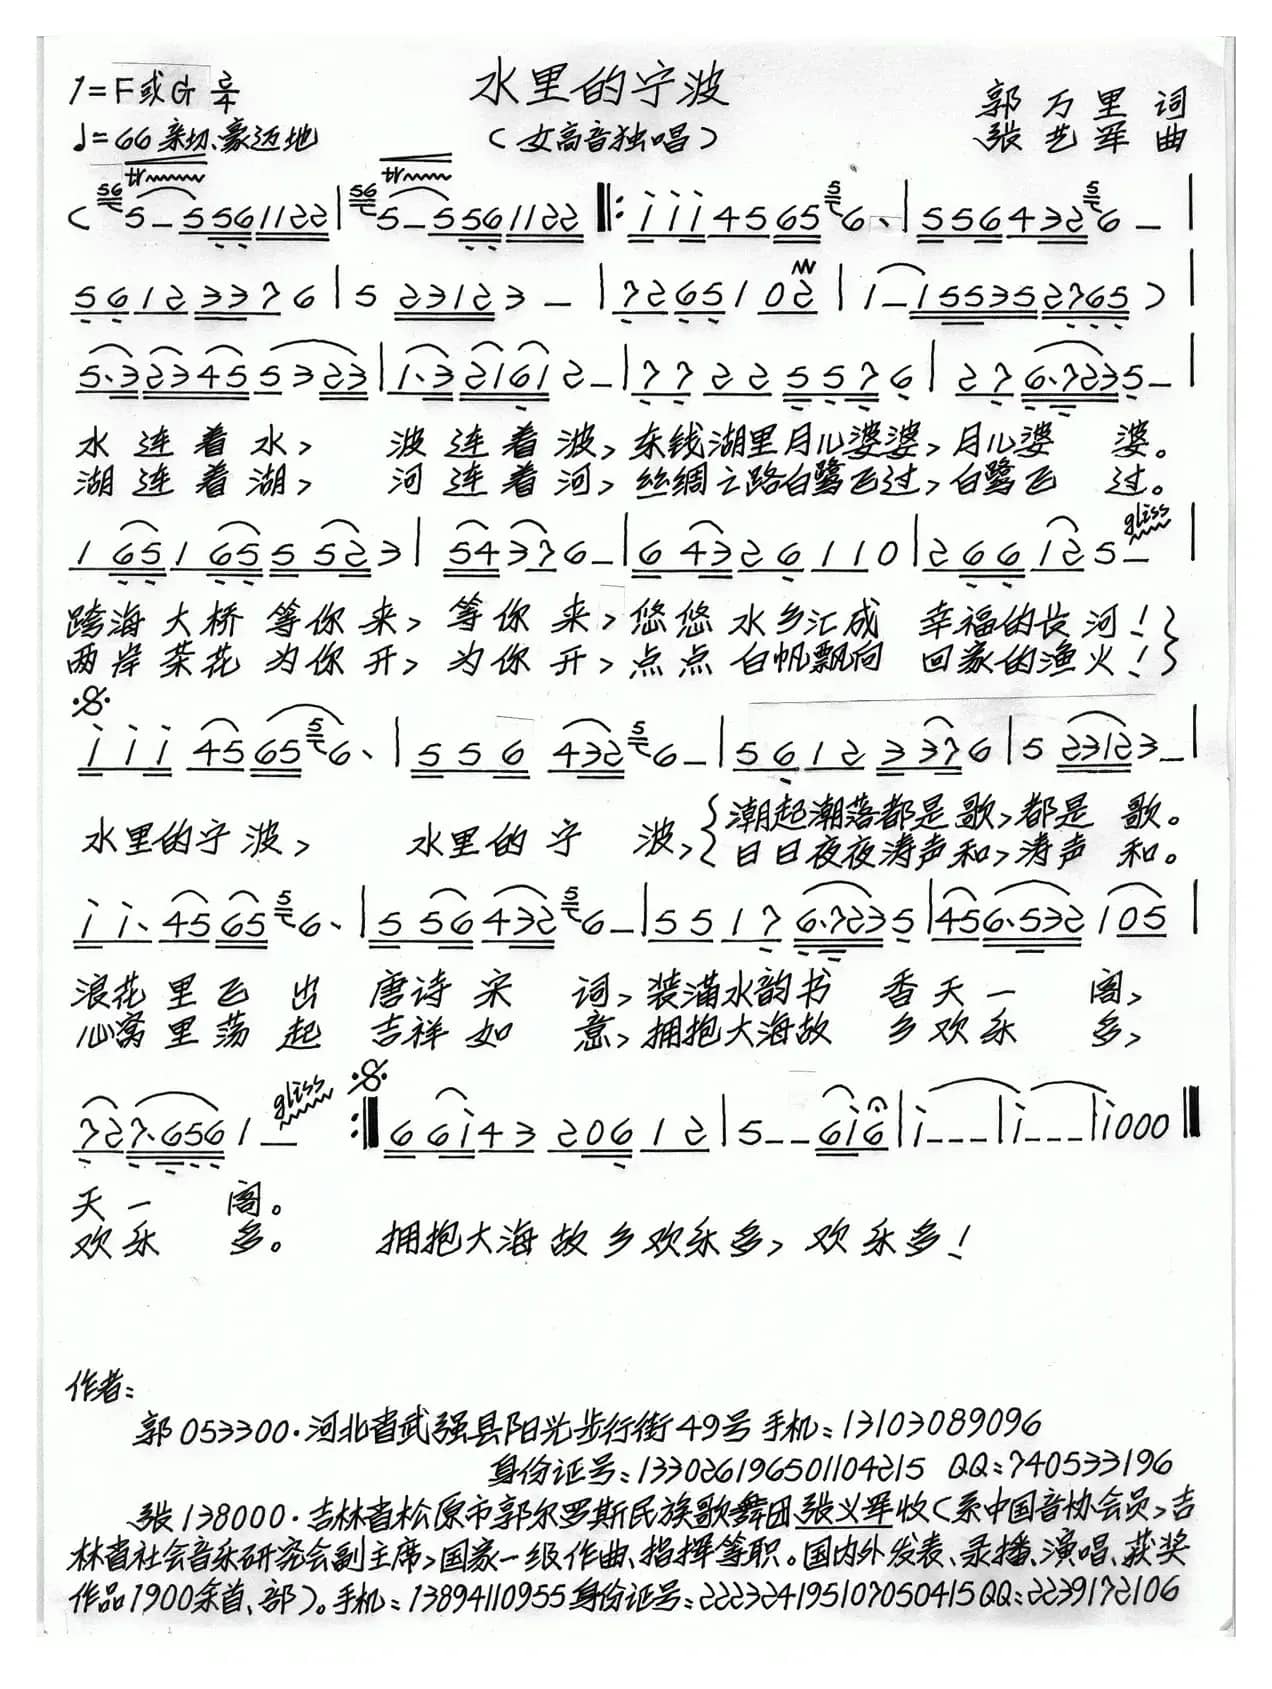 水里的宁波
1=F或G 2/4
♩=66 亲切、豪迈地
(女高音独唱)
郭万里 词
张艺军 曲
( 5–5561122 | 5–5561122 ‖: i i i 4565 6、 | 5564326 – |
56123376 | 5 23123 – | 72651 02 | i–155352765 ) |
5.32345 5323 | 1.321612– | 77225576 | 276.7235– |
水连着水, 波连着波, 东钱湖里月儿婆婆, 月儿婆 婆。
湖连着湖, 河连着河, 丝绸之路白鹭飞过, 白鹭飞 过。
1 65 1 65 5 523 | 54376– | 6 4326 110 | 266 125– gliss |
跨海大桥等你来, 等你来, 悠悠水乡汇成 幸福的长河!
两岸茶花为你开, 为你开, 点点白帆飘向 回家的渔火!
i i i 4565 6、 | 5 5 6 432 6– | 5612 3376 | 5 23123– |
水里的宁波, 水里的宁 波, 潮起潮落都是歌, 都是 歌。
日日夜夜涛声和, 涛声 和。
i i、4565 6、 | 5 56 432 6– | 5517 6.7235 | 456.532 105 |
浪花里飞出 唐诗宋 词, 装满水韵书 香天一 阁,
心窝里荡起 吉祥如 意, 拥抱大海故 乡欢乐 多,
727.6561– gliss :‖ 66i43 20612 | 5––6i6 | i––– | i––– | i000 ‖
天一 阁。
欢乐 多。 拥抱大海故乡欢乐多, 欢乐多!
作者:
郭053300·河北省武强县阳光步行街49号 手机:13103089096
身份证号:133026196501104215 QQ:740533196
张138000·吉林省松原市郭尔罗斯民族歌舞团张义军收(系中国音协会员,吉
林省社会音乐研究会副主席,国家一级作曲、指挥等职。国内外发表、录播、演唱、获奖
作品1900余首、部)。手机:13894110955身份证号:222324195107050415QQ:2239172106